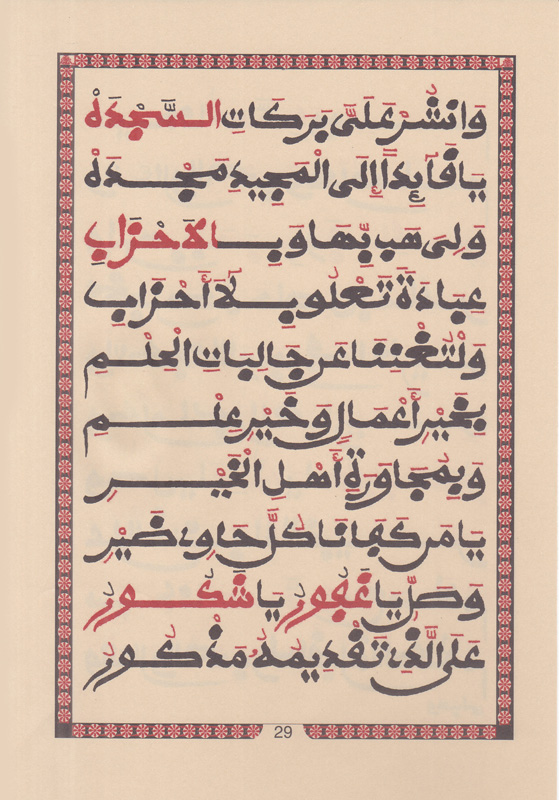 وَانْشُرْ عَلَىَّ بَرَكَاتِ السَّجْدَهْ
يَا قَآيِداً إِلَى الْمَجِيدِ مَجْدَهْ
وَلِى هَب بِّهَا وَبِالاَحْزَابِ
عِبَادَةً تَعْلُو بِلاَ أَحْزَابِ
وَلْتُغْنِنَا عَن جَالِبَاتِ الْحِلْمِ
بِخَيْرِ أَعْمَالٍ وَخَيْرِ عِلْمِ
وَبِمُجَاوَرَةِ أَهْلِ الْخَيْرِ
يَا مَن كَفَانَا كُلَّ حَاوِى ضَيْرِ
وَصَلِّ يَا غَفُورُ يَا شَكُورُ
عَلَى الَّذِى تَقْدِيمُهُ مَذْكُورُ
29